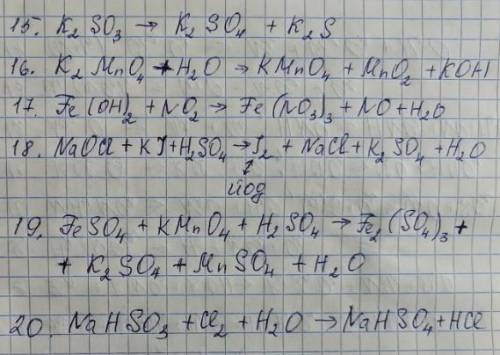 15. K₂SO₃ → K₂SO₄ + K₂S
16. K₂MnO₄ + H₂O → KMnO₄ + MnO₂ + KOH
17. Fe(OH)₂ + NO₂ → Fe(NO₃)₃ + NO + H₂O
18. NaOCl + KJ + H₂SO₄ → J₂ + NaCl + K₂SO₄ + H₂O
йод
19. FeSO₄ + KMnO₄ + H₂SO₄ → Fe₂(SO₄)₃ +
+ K₂SO₄ + MnSO₄ + H₂O
20. NaHSO₃ + Cl₂ + H₂O → NaHSO₄ + HCl